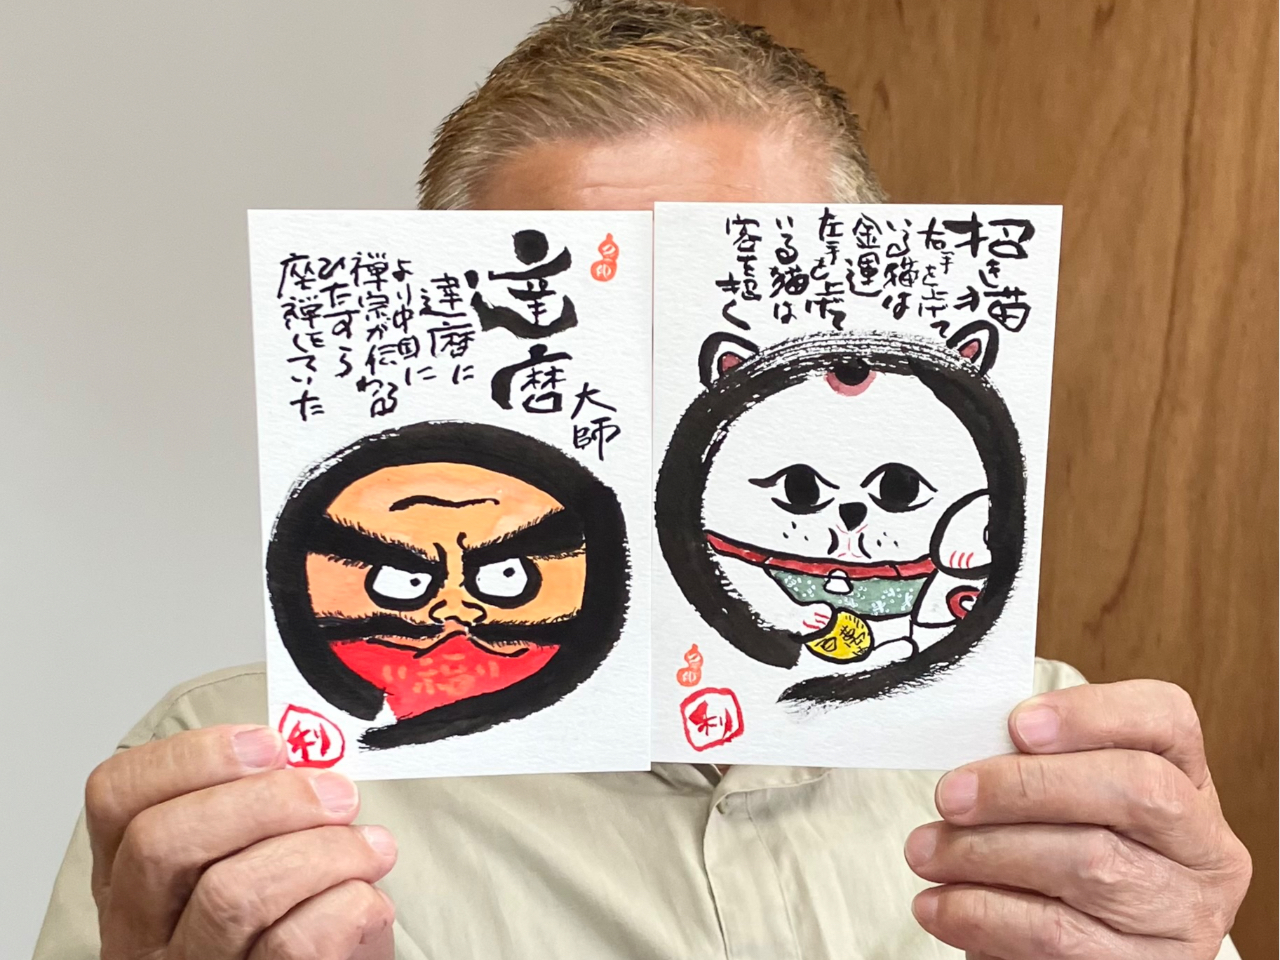 達磨
大師
達磨に
より中国に
禅宗が伝わる
ひたすら
座禅をしていた
福
利
招き猫
右手を上げて
いる猫は
金運
左手を上げて
いる猫は
客を招く
利